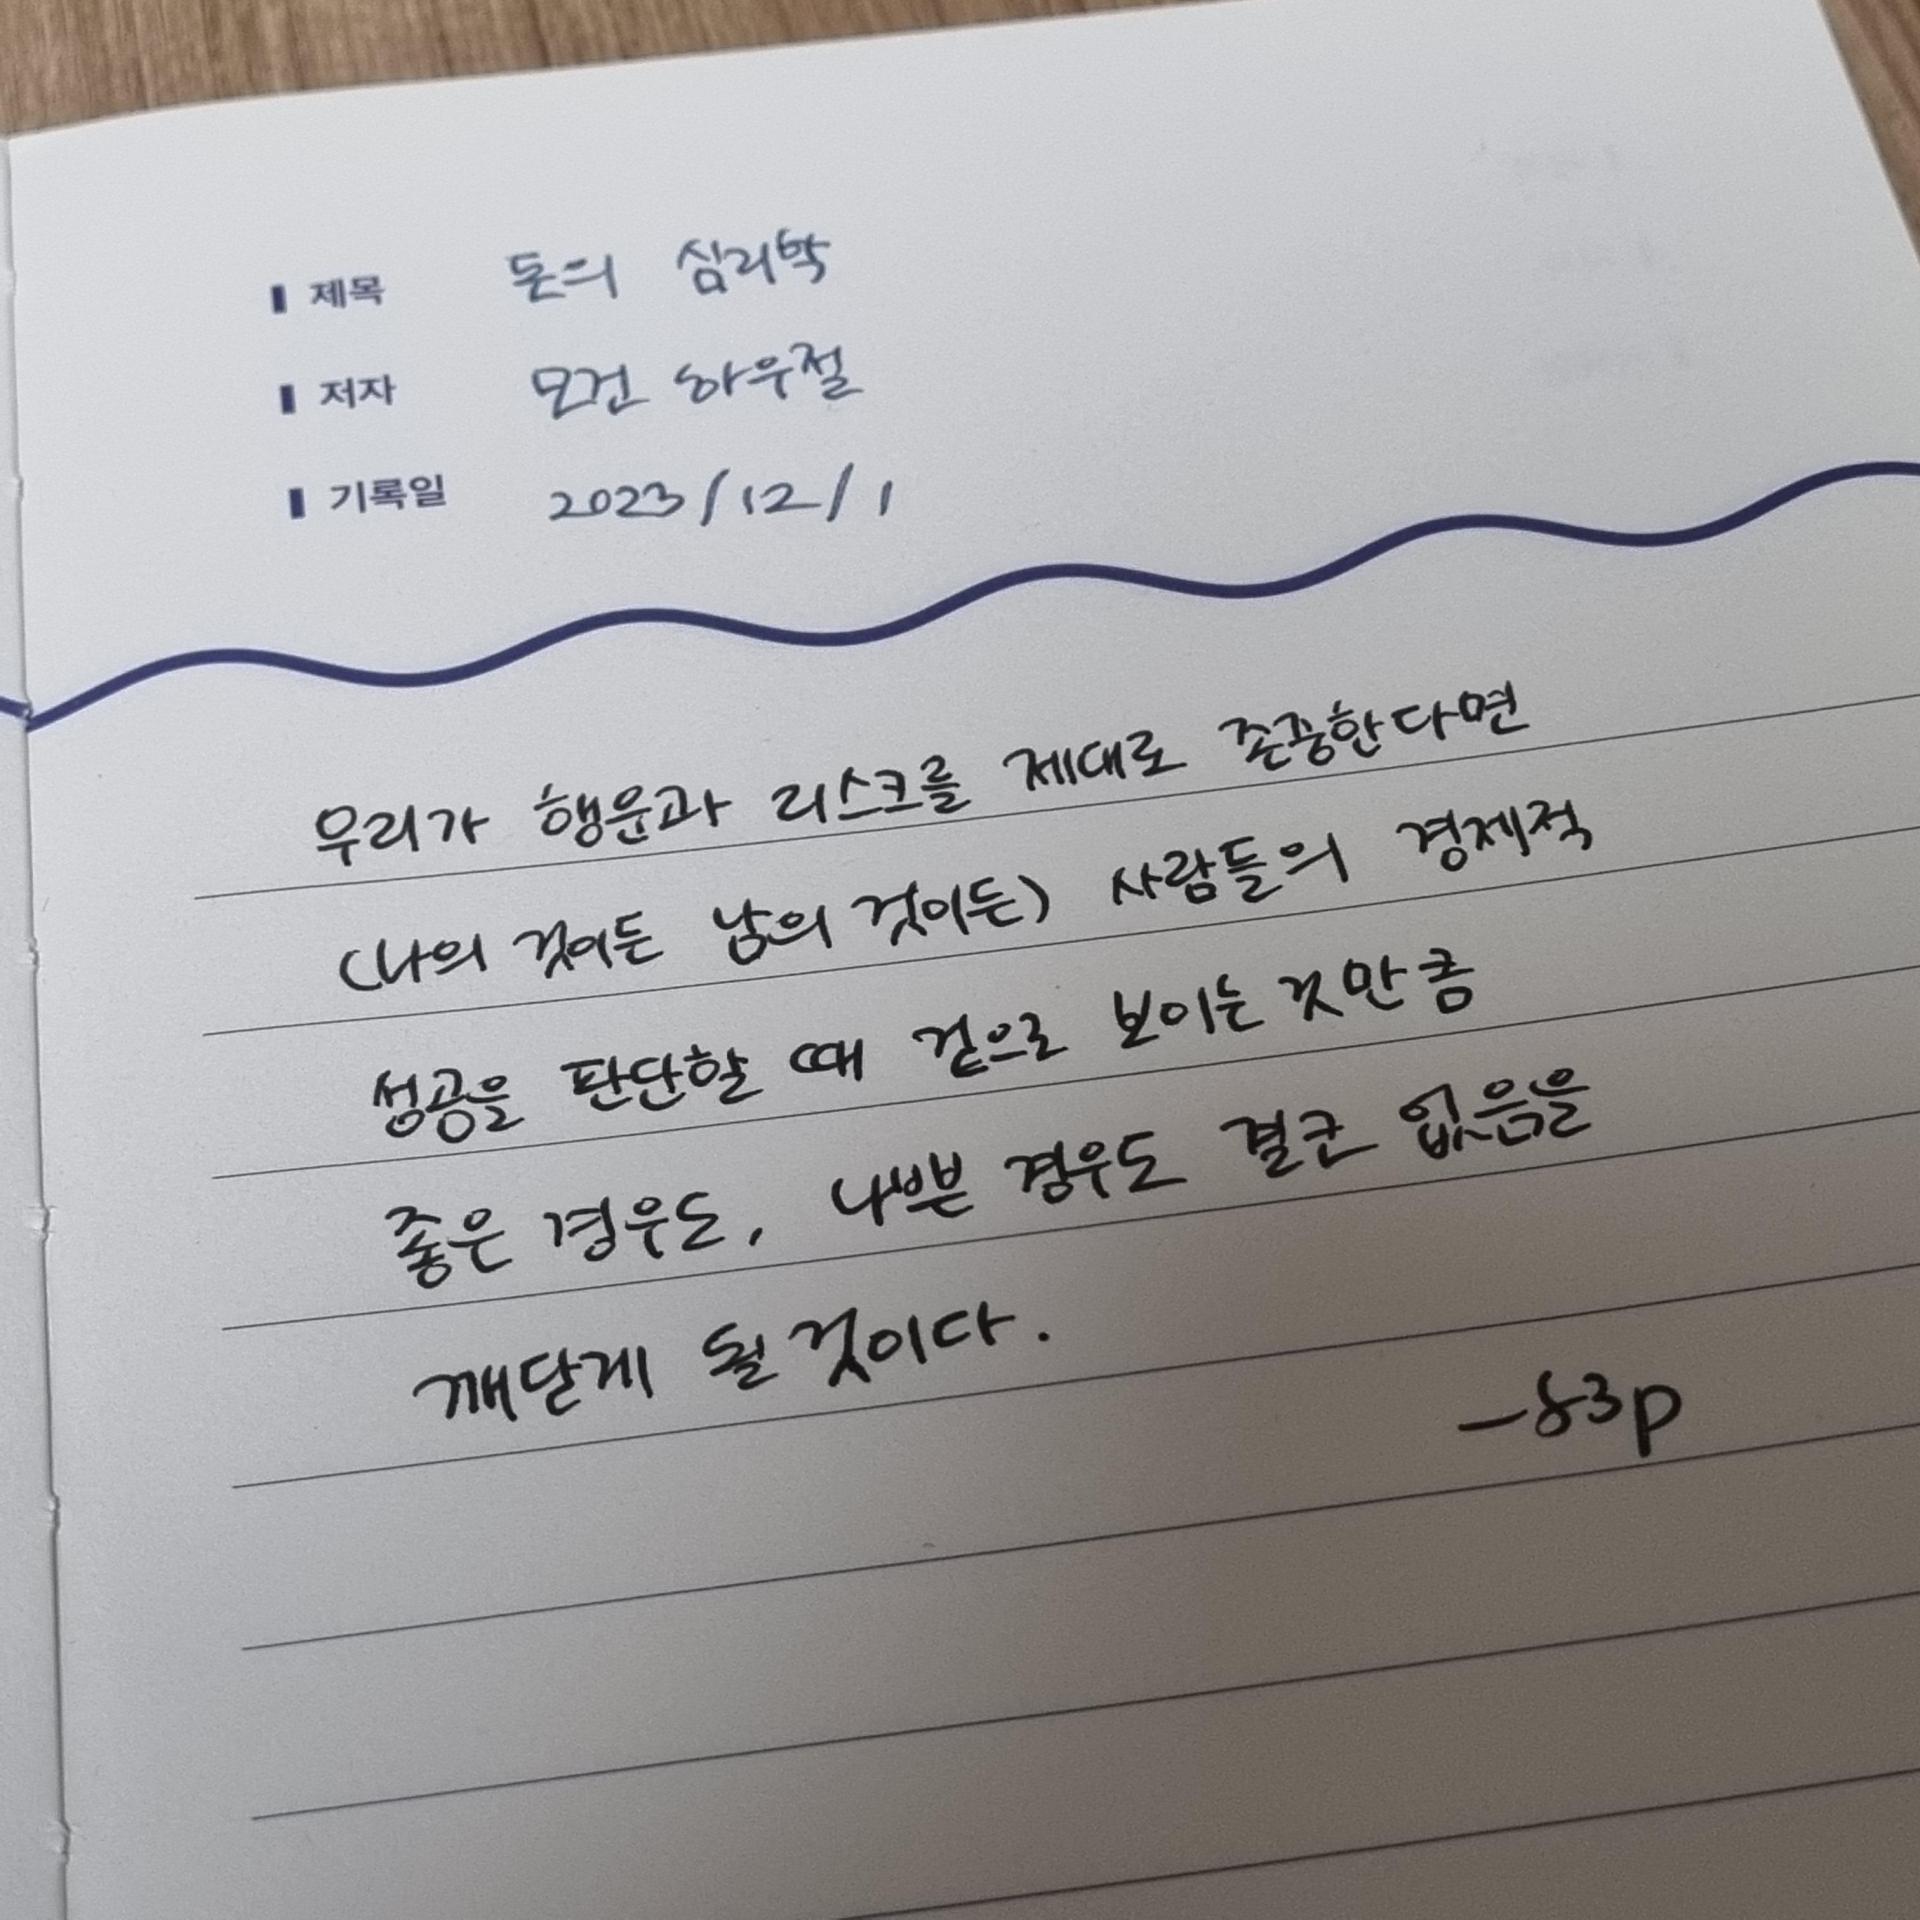 제목 돈의 심리학
저자 모건 하우절
기록일 2023/12/1
우리가 행운과 리스크를 제대로 존중한다면
(나의 것이든 남의 것이든) 사람들의 경제적
성공을 판단할 때 겉으로 보이는 것만큼
좋은 경우도, 나쁜 경우도 결코 없음을
깨닫게 될 것이다.
-83p